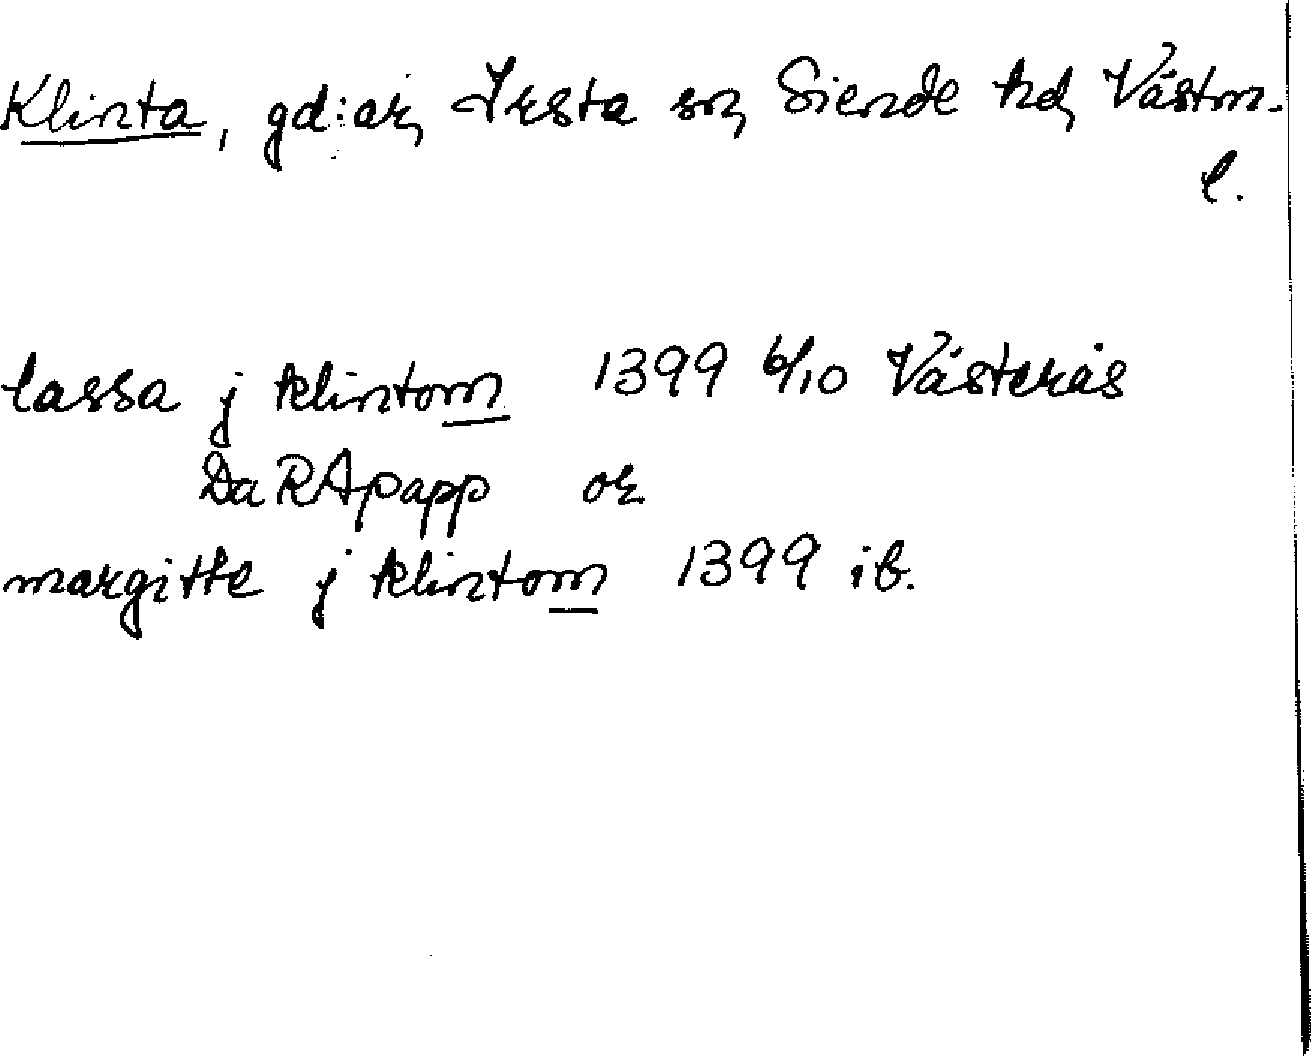 Klinta, gd:ar, Irsta sn, Siende hd, Västm-
l.
lassa j klintom 1399 6/10 Västerås
Da RApapp or
margitte j klintom 1399 ib.